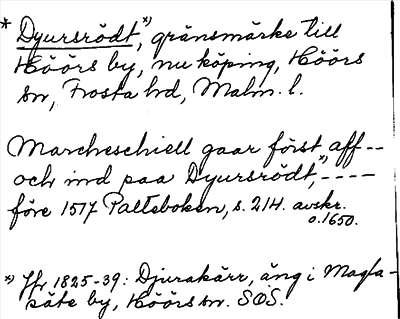 * Dyursrödt,*) gränsmärke till
Höörs by, nu köping, Höörs
sn, Frosta hd, Malm. l.
Marcheschiell gaar först aff --
och ind paa Dyursrödt,*) ----
före 1517 Palteboken, s. 214. avskr.
o. 1650.
*) Jfr 1825-39: Djurakärr, äng i Magla-
säte by, Höörs sn. SOS.